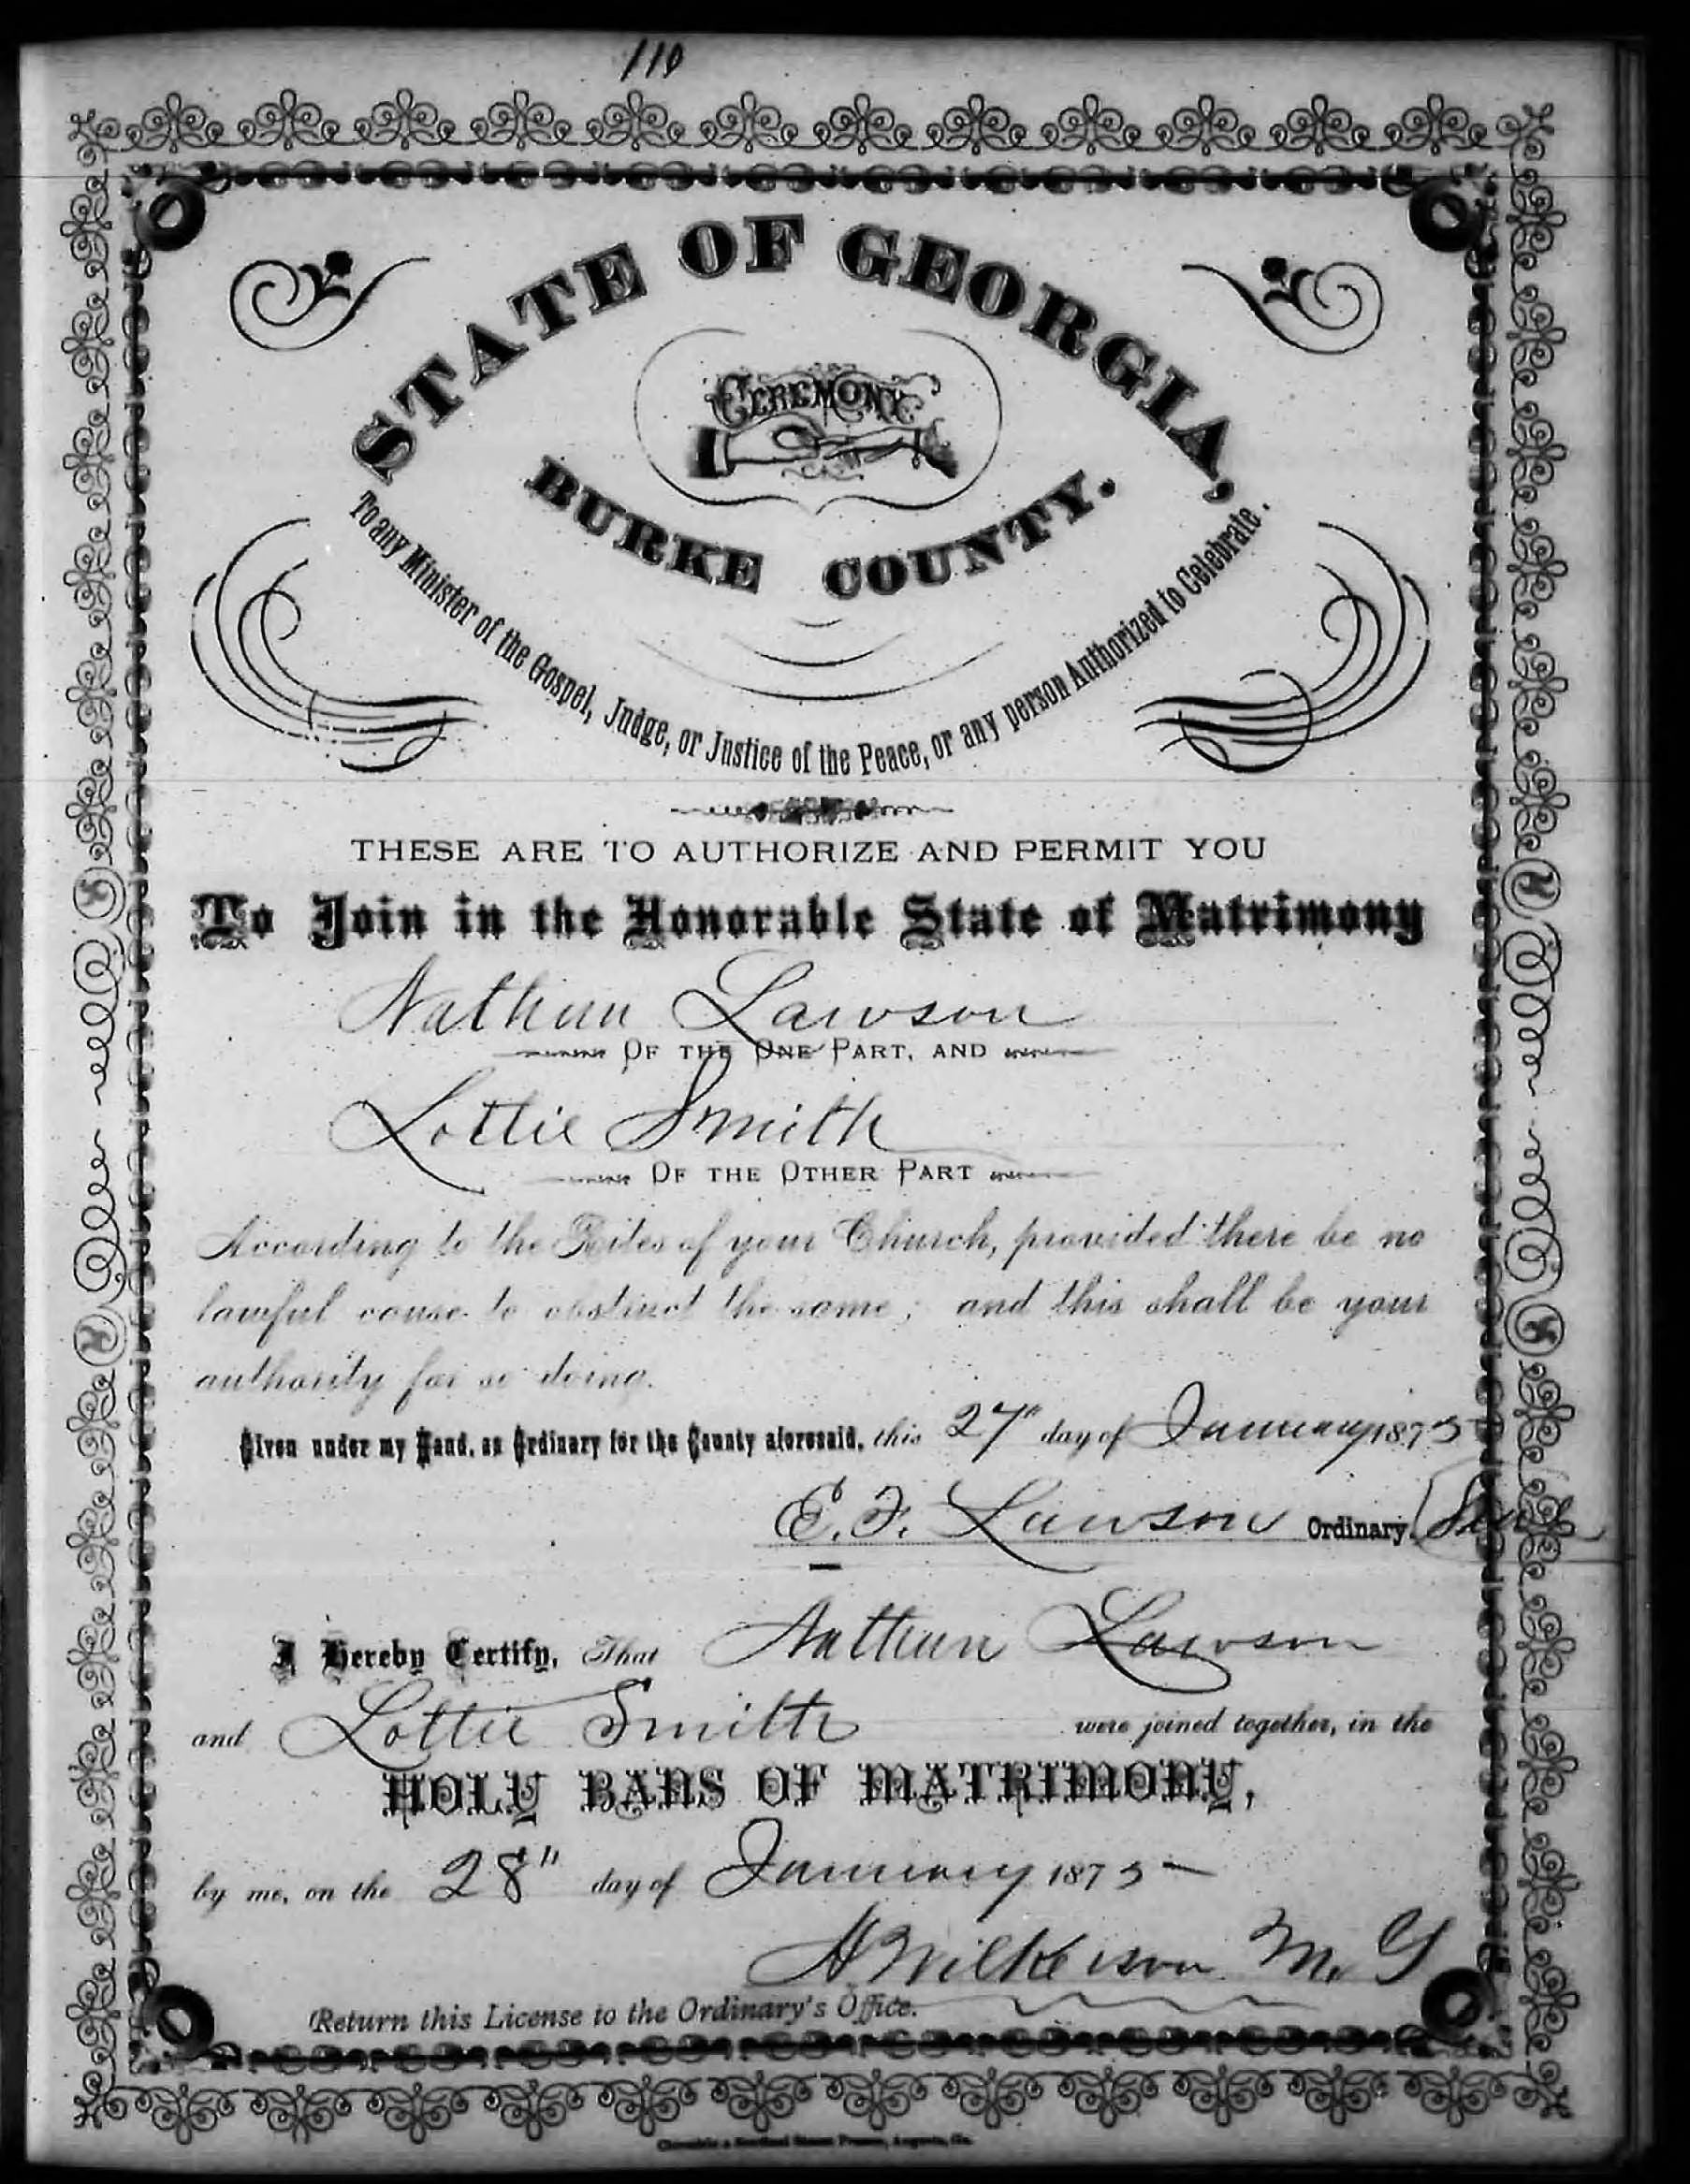 110
STATE OF GEORGIA,
CEREMONY
BURKE COUNTY.
To any Minister of the Gospel, Judge, or Justice of the Peace, or any person Authorized to Celebrate.
THESE ARE TO AUTHORIZE AND PERMIT YOU
To Join in the Honorable State of Matrimony
Nathan Lawson
OF THE ONE PART, AND
Lottie Smith
OF THE OTHER PART
According to the Rites of your Church, provided there be no
lawful cause to obstruct the same; and this shall be your
authority for so doing.
Given under my Hand, as Ordinary for the County aforesaid, this 27" day of January 1875
E. F. Lawson Ordinary. (Seal
I Hereby Certify, That Nathan Lawson
and Lottie Smith were joined together, in the
HOLY BANS OF MATRIMONY,
by me, on the 28" day of January 1875
A Wilkerson M. G
Return this License to the Ordinary's Office.
Chronicle & Sentinel Steam Presses, Augusta, Ga.